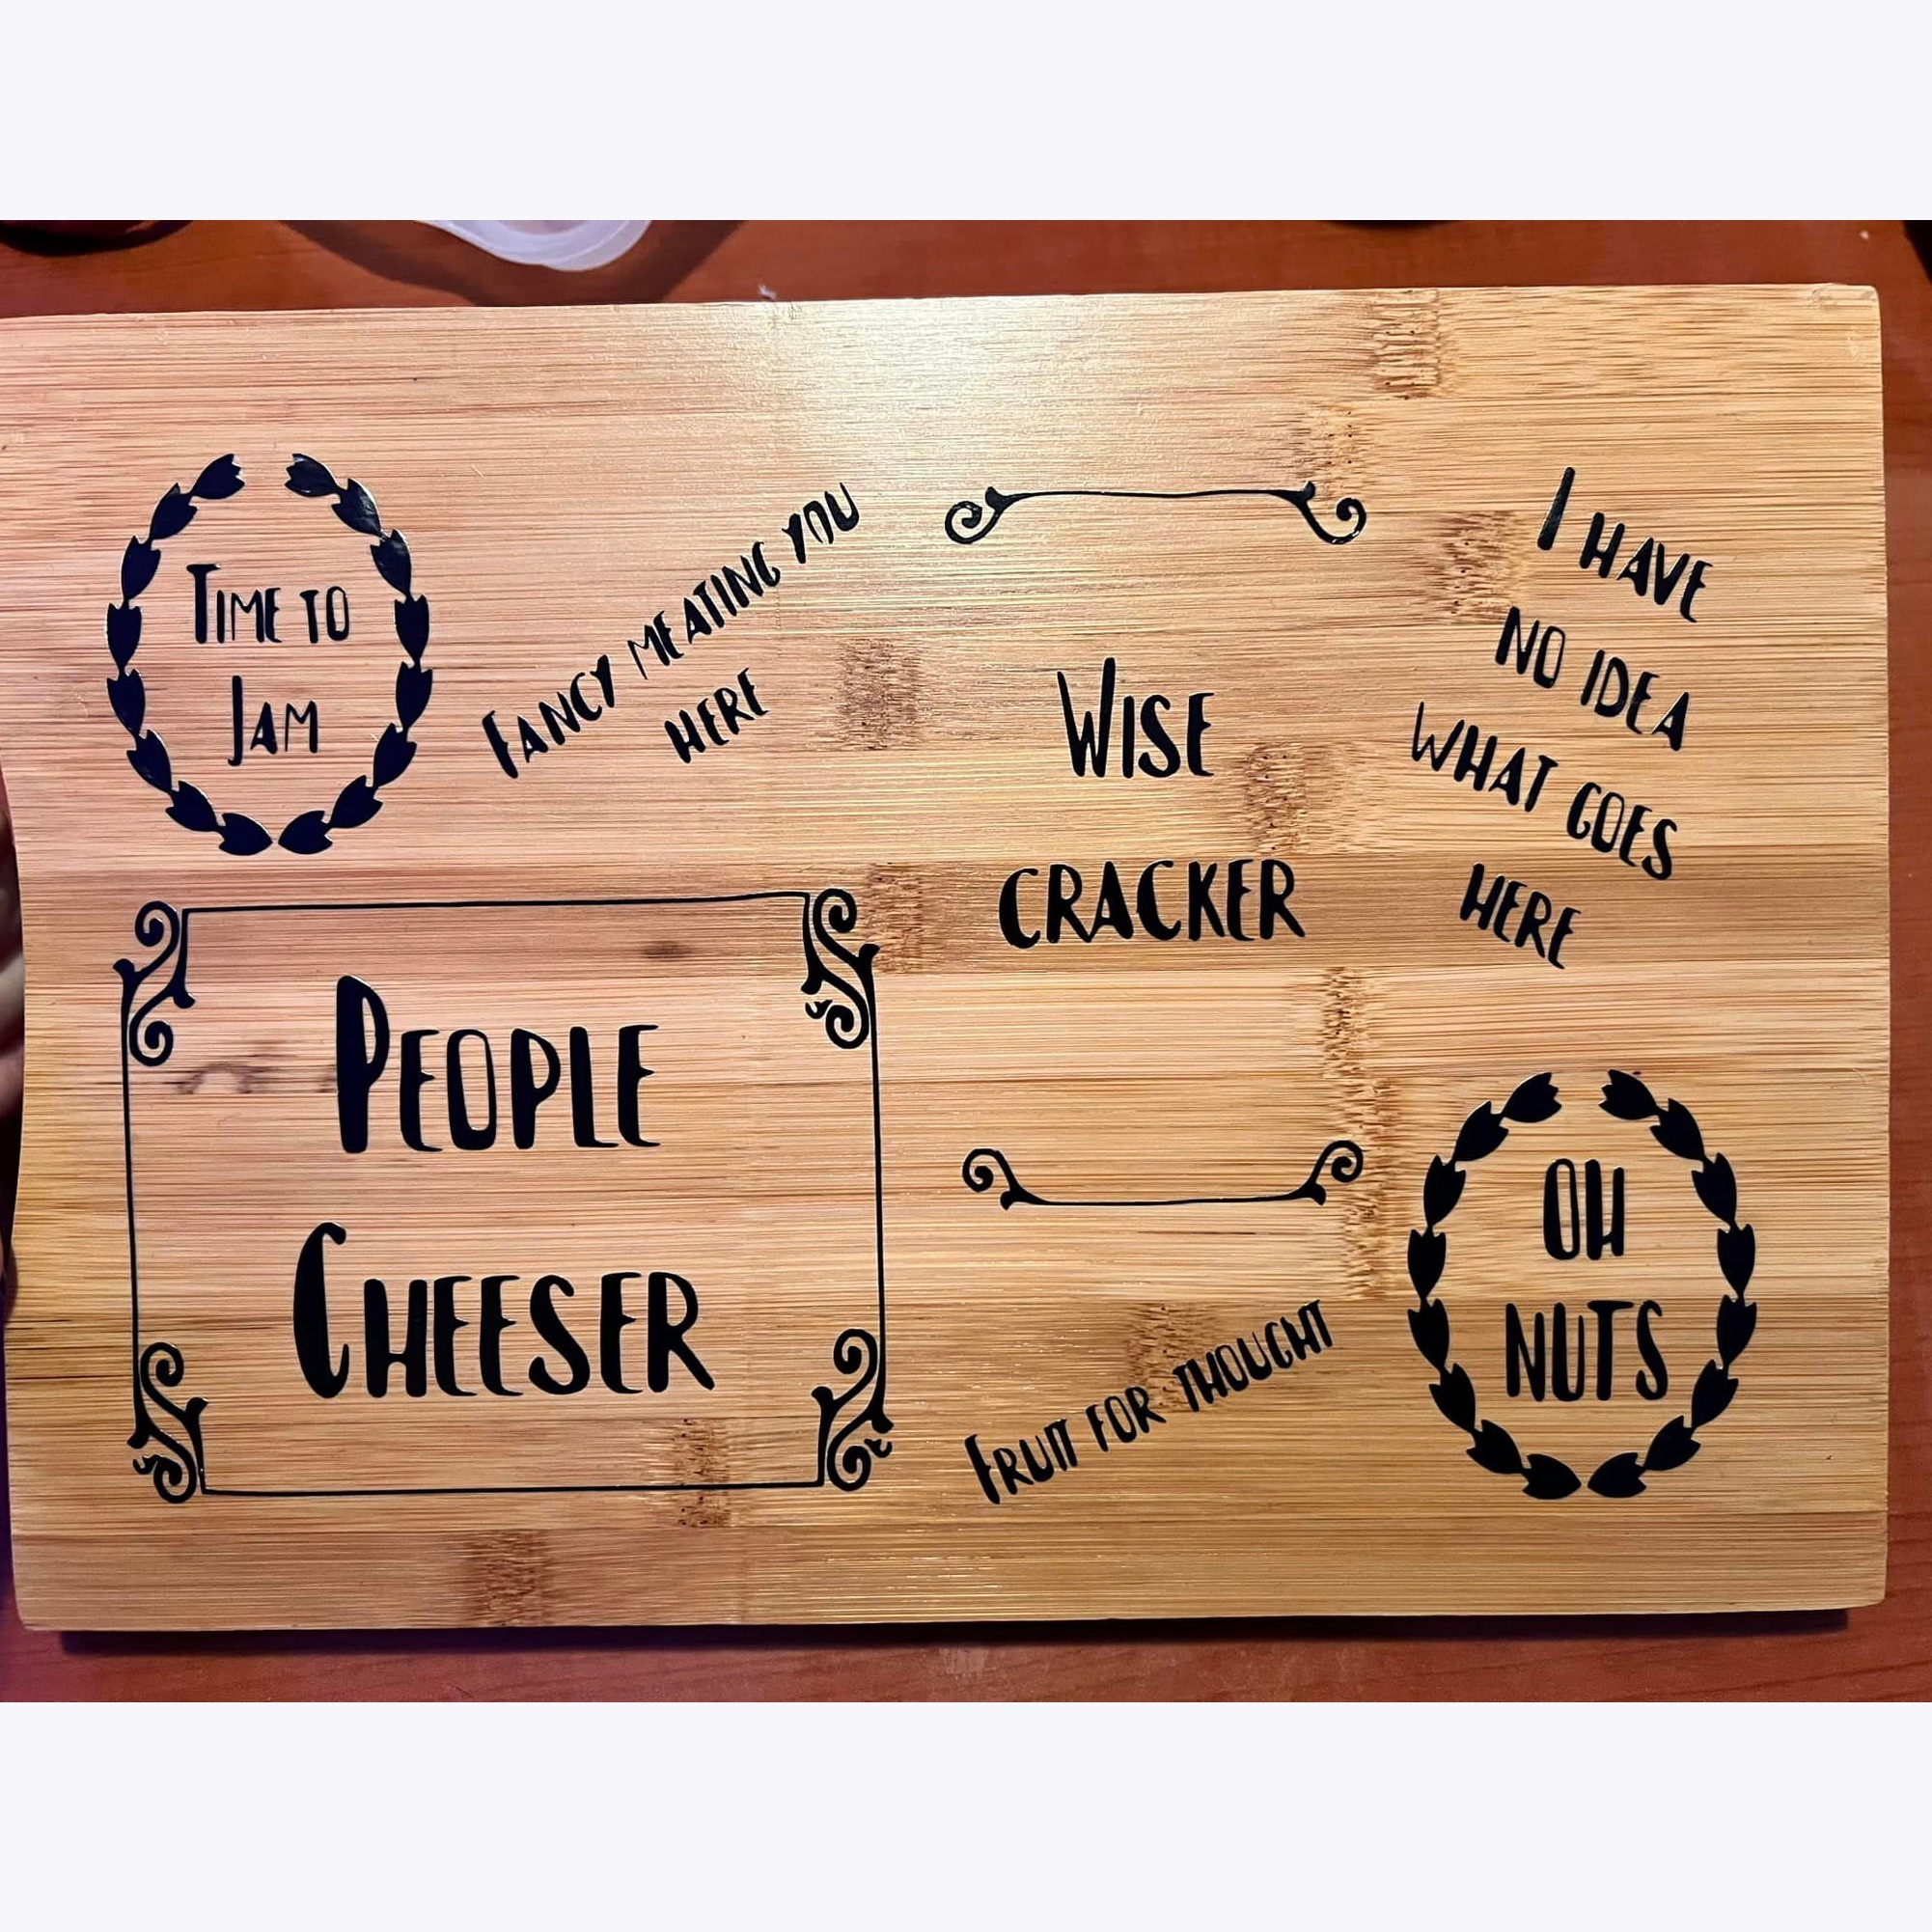 Time to
Jam
Fancy meating you
here
Wise
cracker
I have
no idea
what goes
here
People
Cheeser
Fruit for thought
Oh
nuts